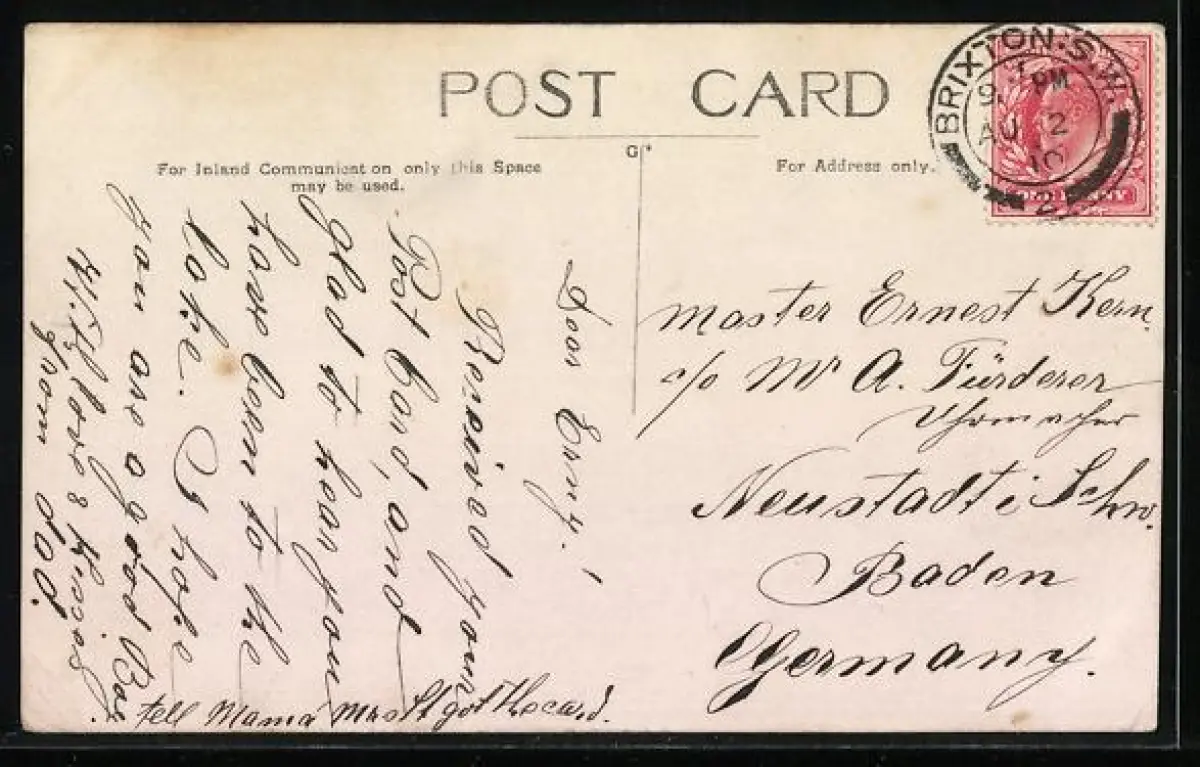 POST CARD
For Inland Communication only this Space
may be used.
For Address only.
BRIXTON. S.W.
9. PM
AU 2
10
2
ONE PENNY
Master Ernest Kern
c/o Mr A. Fürderer
Uhrmacher
Neustadt i Schw.
Baden
Germany.
Dear Erny!
Received your
Post Card, and
glad to hear you
have been to the
lake. I hope
you are a good Boy
With love & Kisses
from dad.
tell Mama Mrs St got the card.